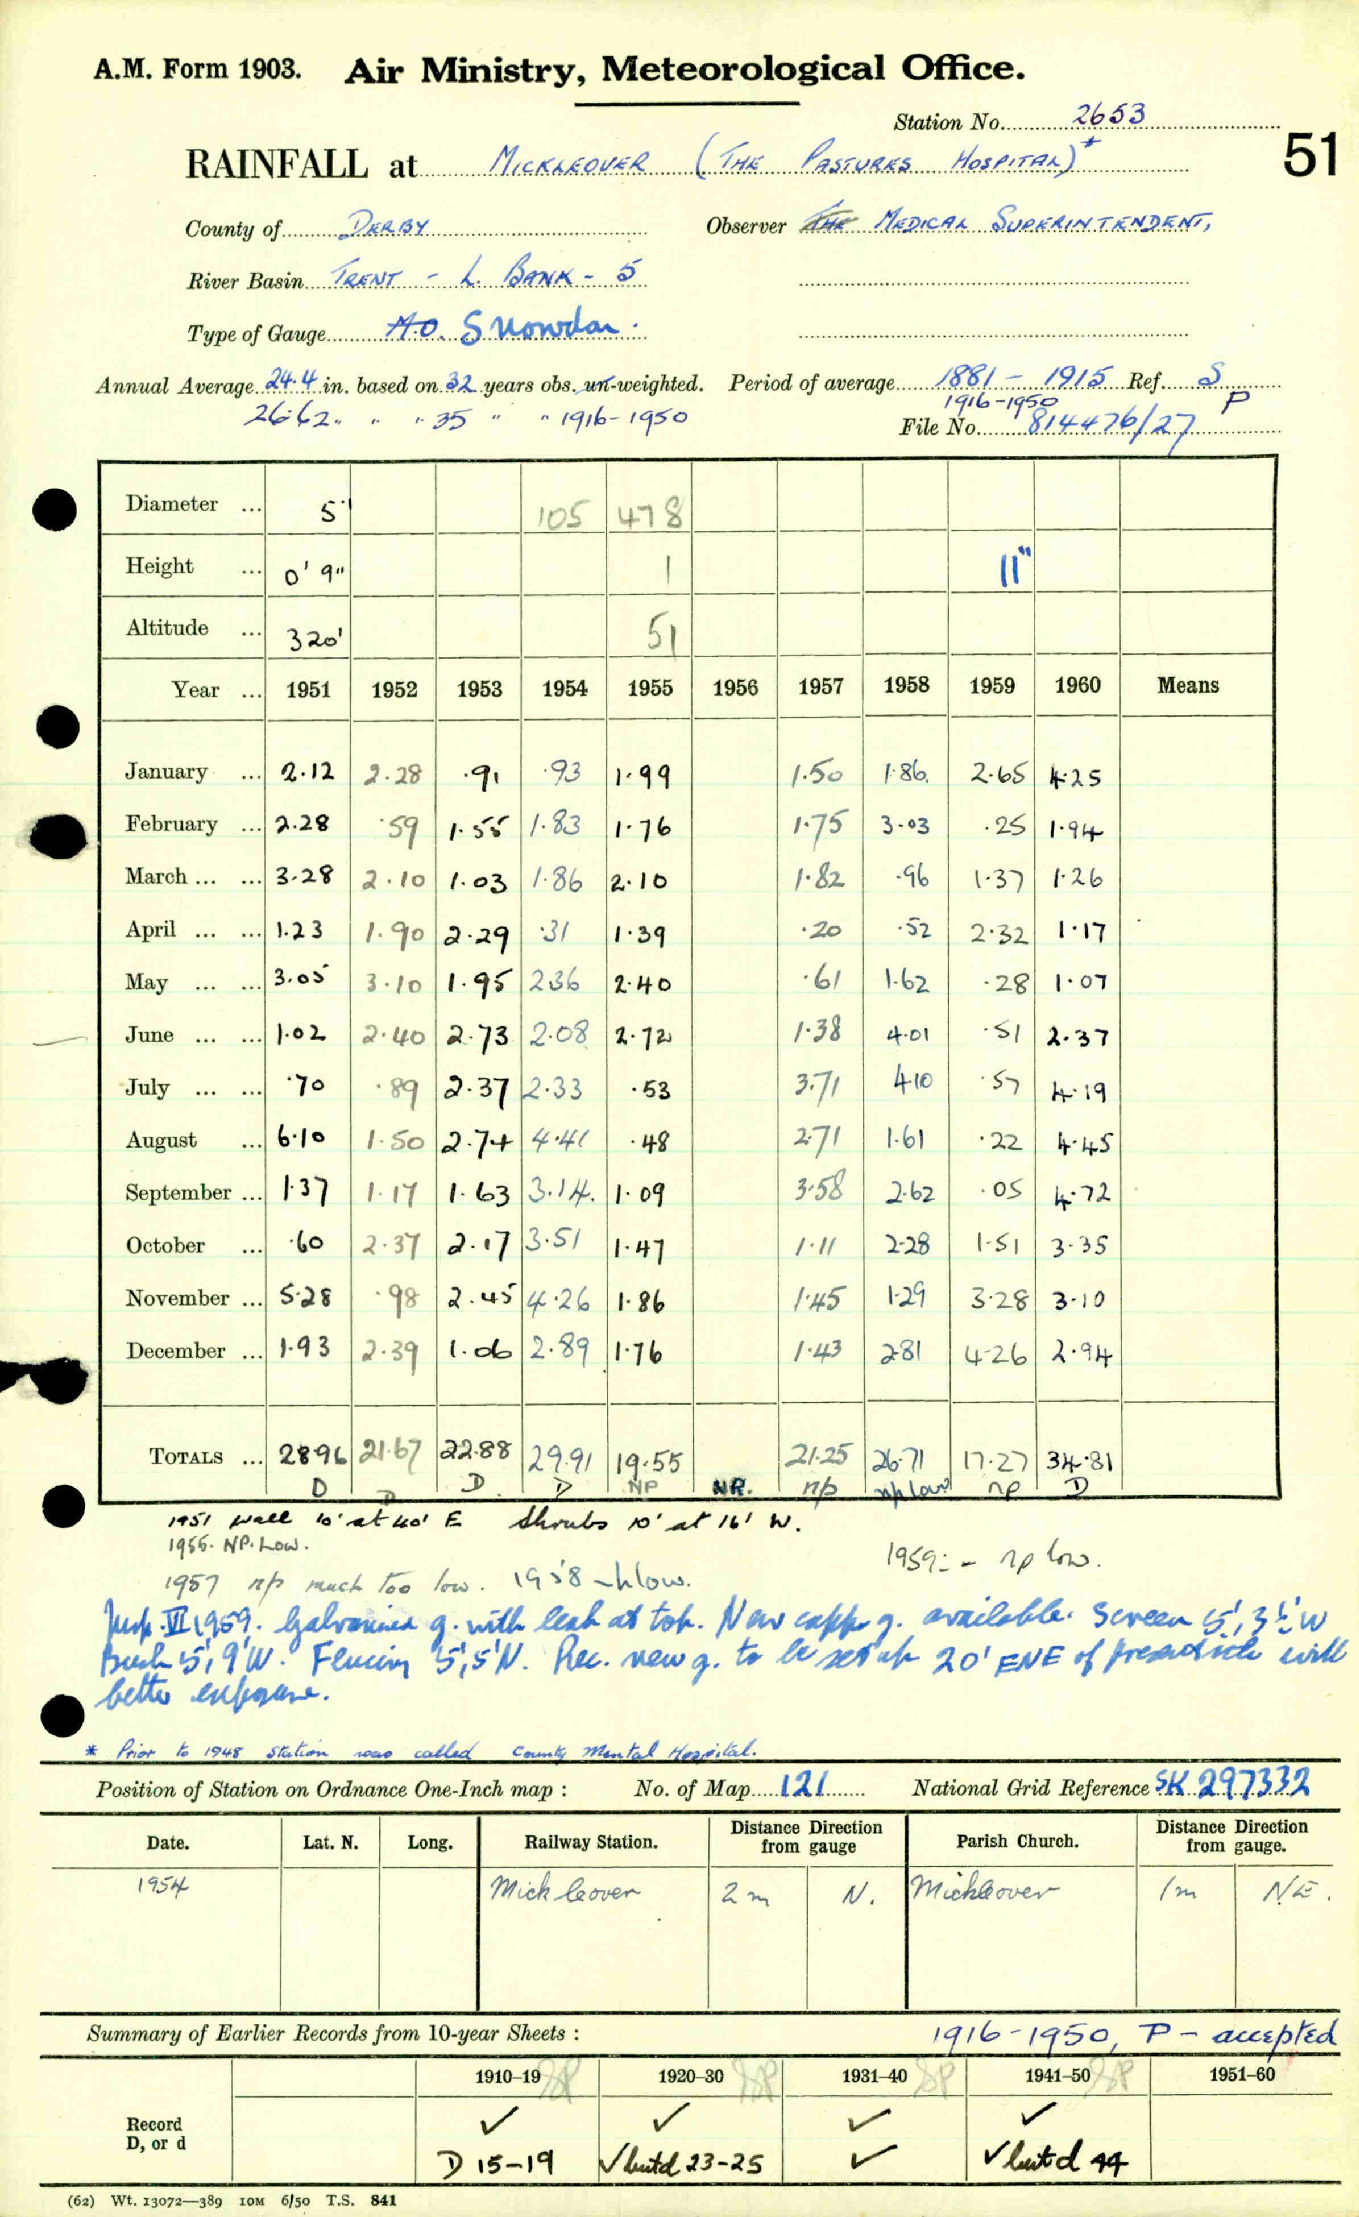 A.M. Form 1903. Air Ministry, Meteorological Office.
Station No. 2653
51
RAINFALL at MICKLEOVER (THE PASTURES HOSPITAL)*
County of DERBY Observer THE MEDICAL SUPERINTENDENT,
River Basin TRENT - L. BANK - 5
Type of Gauge M.O. Snowdon.
Annual Average 24.4 in. based on 32 years obs. un-weighted. Period of average 1881 - 1915 Ref. S
26.62 " " " 35 " " 1916-1950 1916-1950 P
File No. 814476/27
Diameter ... 5" 105 478
Height ... 0' 9" 1 11"
Altitude ... 320' 51
Year ... 1951 1952 1953 1954 1955 1956 1957 1958 1959 1960 Means
January ... 2.12 2.28 .91 .93 1.99 1.50 1.86 2.65 4.25
February ... 2.28 .59 1.55 1.83 1.76 1.75 3.03 .25 1.94
March ... ... 3.28 2.10 1.03 1.86 2.10 1.82 .96 1.37 1.26
April ... ... 1.23 1.90 2.29 .31 1.39 .20 .52 2.32 1.17
May ... ... 3.05 3.10 1.95 2.36 2.40 .61 1.62 .28 1.07
June ... ... 1.02 2.40 2.73 2.08 2.72 1.38 4.01 .51 2.37
July ... ... .70 .89 2.37 2.33 .53 3.71 4.10 .57 4.19
August ... 6.10 1.50 2.74 4.41 .48 2.71 1.61 .22 4.45
September ... 1.37 1.17 1.63 3.14 1.09 3.58 2.62 .05 4.72
October ... .60 2.37 2.17 3.51 1.47 1.11 2.28 1.51 3.35
November ... 5.28 .98 2.45 4.26 1.86 1.45 1.29 3.28 3.10
December ... 1.93 2.39 1.06 2.89 1.76 1.43 2.81 4.26 2.94
TOTALS ... 28.96 21.67 22.88 29.91 19.55 21.25 26.71 17.27 34.81
D D D D NP NR. np np low np D
1951 Wall 10' at 40' E Shrubs 10' at 16' W.
1955. NP. Low. 1959:- np low.
1957 np much too low. 1958 - low.
Insp. VI 1959. Galvanised g. with leak at top. New copper g. available. Screen 5', 3½'W
Bush 5', 9'W. Fencing 5', 5'N. Rec. new g. to be set up 20' ENE of present site with
better exposure.
* Prior to 1948 station was called County Mental Hospital.
Position of Station on Ordnance One-Inch map : No. of Map 121 National Grid Reference SK 297332
Date. Lat. N. Long. Railway Station. Distance Direction from gauge Parish Church. Distance Direction from gauge.
1954 Mickleover 2 m N. Mickleover 1 m NE.
Summary of Earlier Records from 10-year Sheets : 1916-1950, P - accepted
1910–19 SP 1920–30 SP 1931–40 SP 1941–50 SP 1951–60
Record ✓ ✓ ✓ ✓
D, or d D 15-19 ✓ but d 23-25 ✓ ✓ but d 44
(62) Wt. 13072—389 10M 6/50 T.S. 841